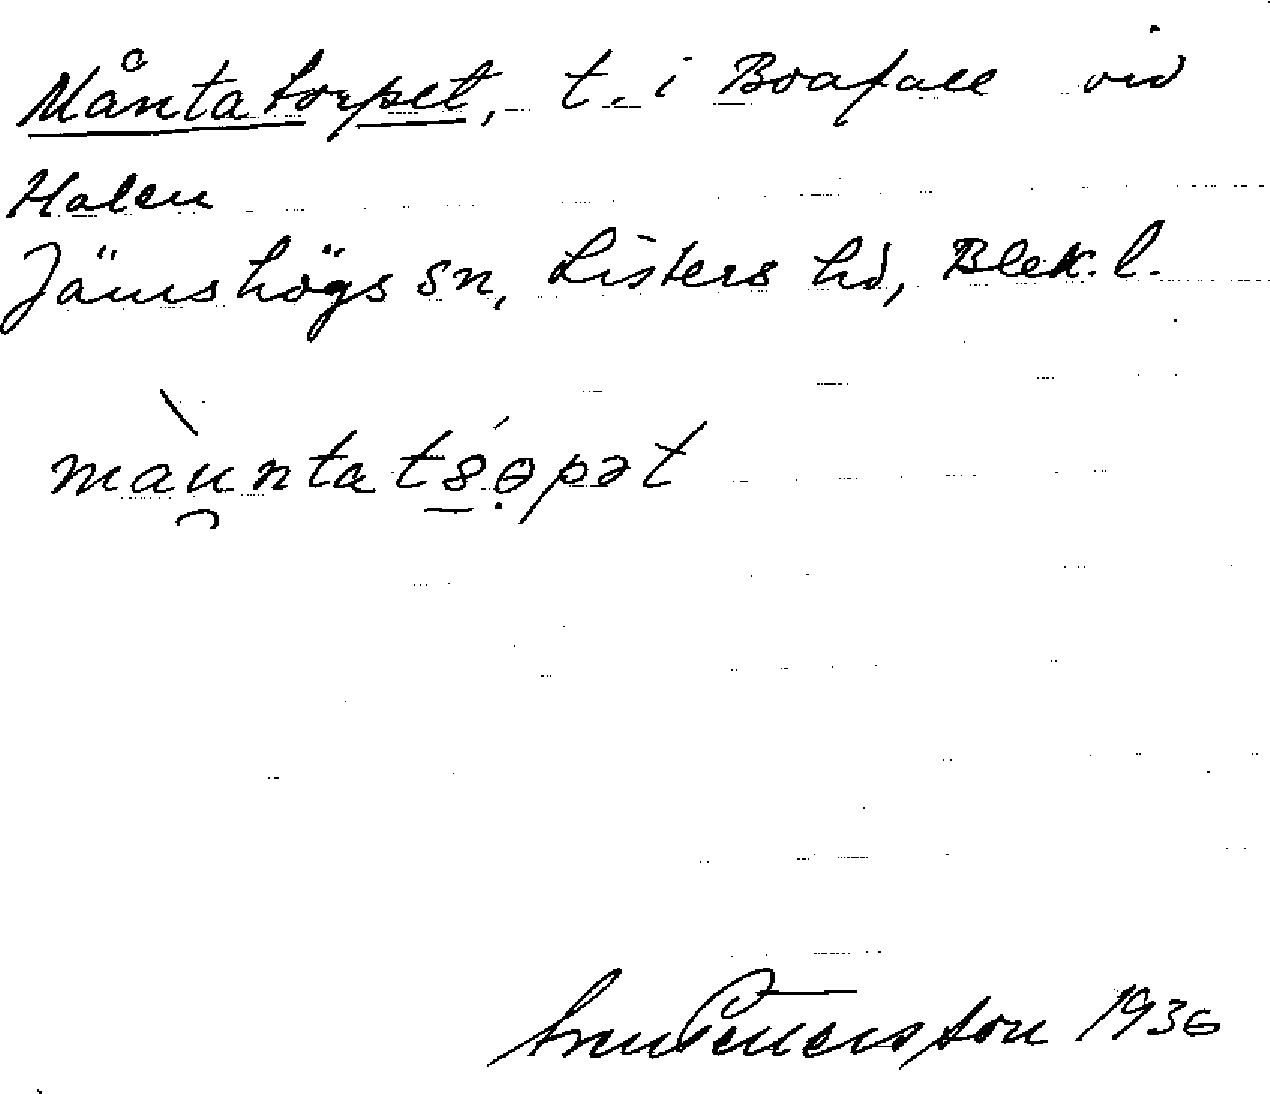 Måntatorpet, t. i Boafall vid
Halen
Jämshögs sn, Listers hd, Blek. l.
Pettersson 1936